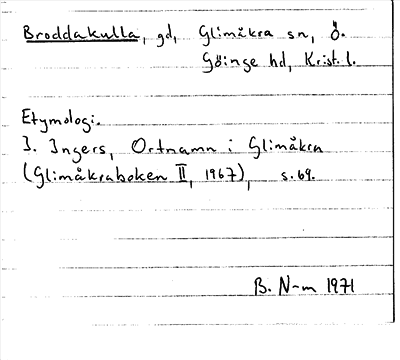 Broddakulla, gd, Glimåkra sn, Ö.
Göinge hd, Krist. l.
Etymologi.
I. Ingers, Ortnamn i Glimåkra
(Glimåkraboken II, 1967), s. 69.
B. N-m 1971